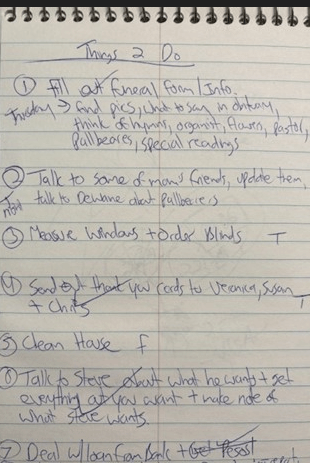 Things 2 Do
① Fill out funeral form/Info.
Tuesday → find pics, what to say in obituary,
think of hymns, organist, flowers, pastor,
Pallbeares, special readings
② Talk to some of mom's friends, update them,
talk to about Pallbearers
③ Measure Windows + Order Blinds T
④ Send out thank you cards to Veronica, Susan T
+ Chris
⑤ Clean House F
⑥ Talk to Steve about what he wants + get
everything you want + make note of
what Steve wants.
⑦ Deal w/ loan from Bank +